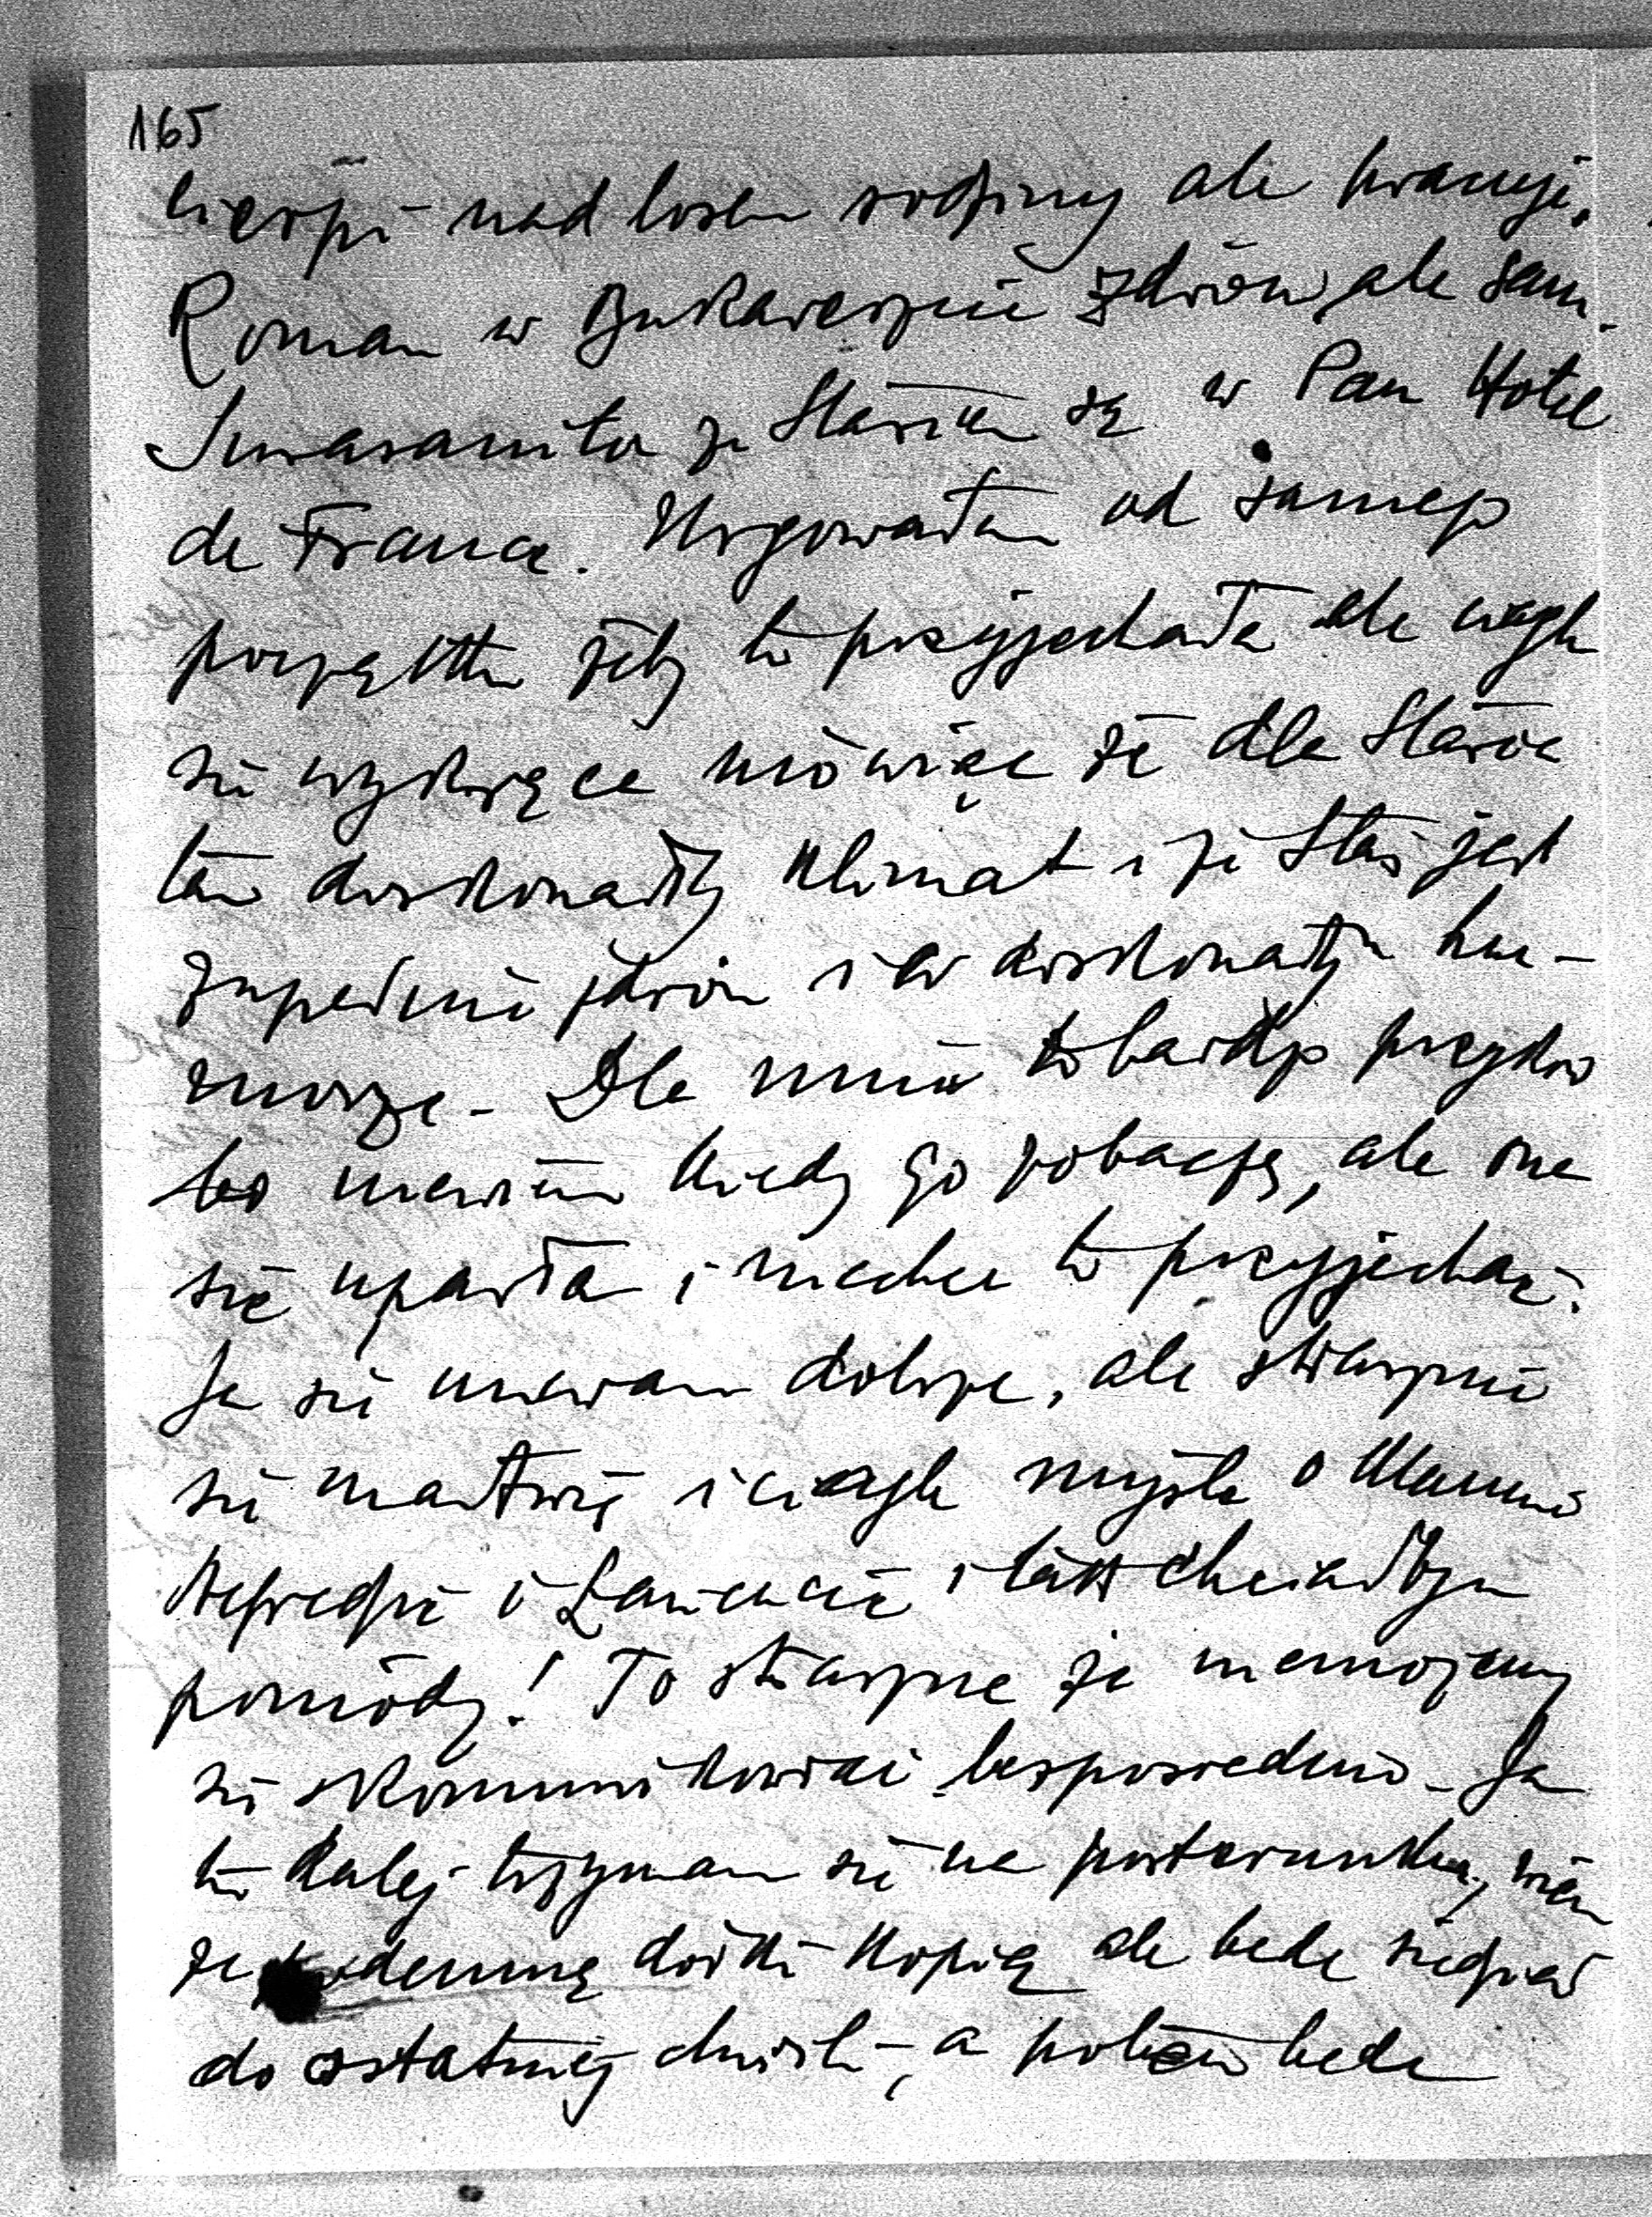 165
cierpi nad losem rodziny ale pracuje.
Roman w Bukareszcie zdrów ale sam.
ze Stasiem są w Pau Hotel
de France. Urgowałam od samego
początku żeby tu przyjechała ale ciągle
się wykręca mówiąc że dla Stasia
tam doskonały klimat i że Staś jest
zupełnie zdrów i w doskonałym hu-
morze – Dla mnie to bardzo przykro
bo niewiem kiedy go zobaczę, ale ona
się uparła i niechce tu przyjechać.
Ja się miewam dobrze, ale strasznie
się martwię i ciągle myślę o Mamie
Alfredzie i Łańcucie i tak chciałbym
pomódz! To straszne że niemożemy
się skomunikować bezpośrednio – Ja
tu dalej trzymam się na posterunku, wiem
że podemną dołki kopią ale będę siedział
do ostatniej chwili, a potem będę